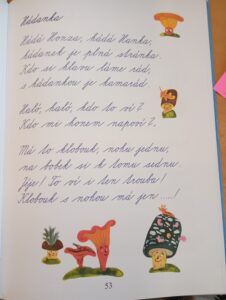 Hádanka
Hádá Honza, hádá Hanka,
hádanek je plná stránka.
Kdo si hlavu láme rád,
s hádankou je kamarád.
Haló, haló, kdo to ví?
Kdo mi honem napoví?
Má to klobouk, nohu jednu,
na bobek si k tomu sednu.
Jéje! To ví i ten trouba!
Klobouk s nohou má jen .....!
53